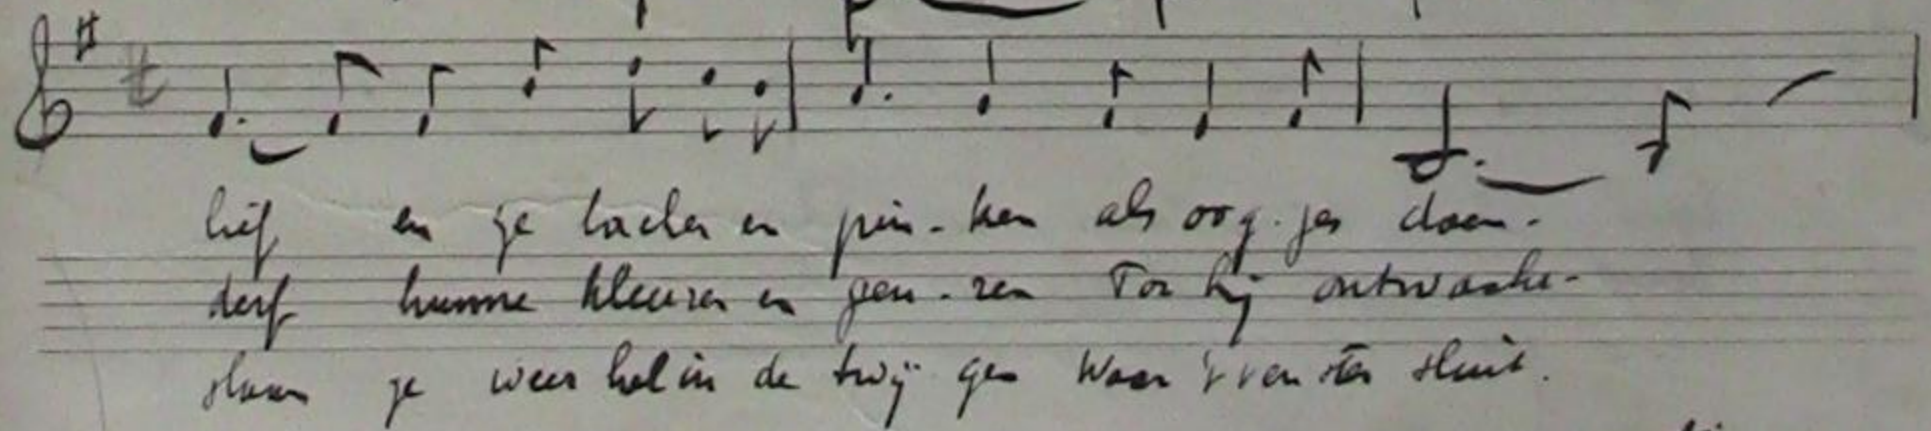 lief en je lachen en pin-ken als oog-jes doen-
derf hunne kleuren en geu-ren Tor hij ontwake-
slaan je weer hel in de twij gen Waar 't ven ster sluit.